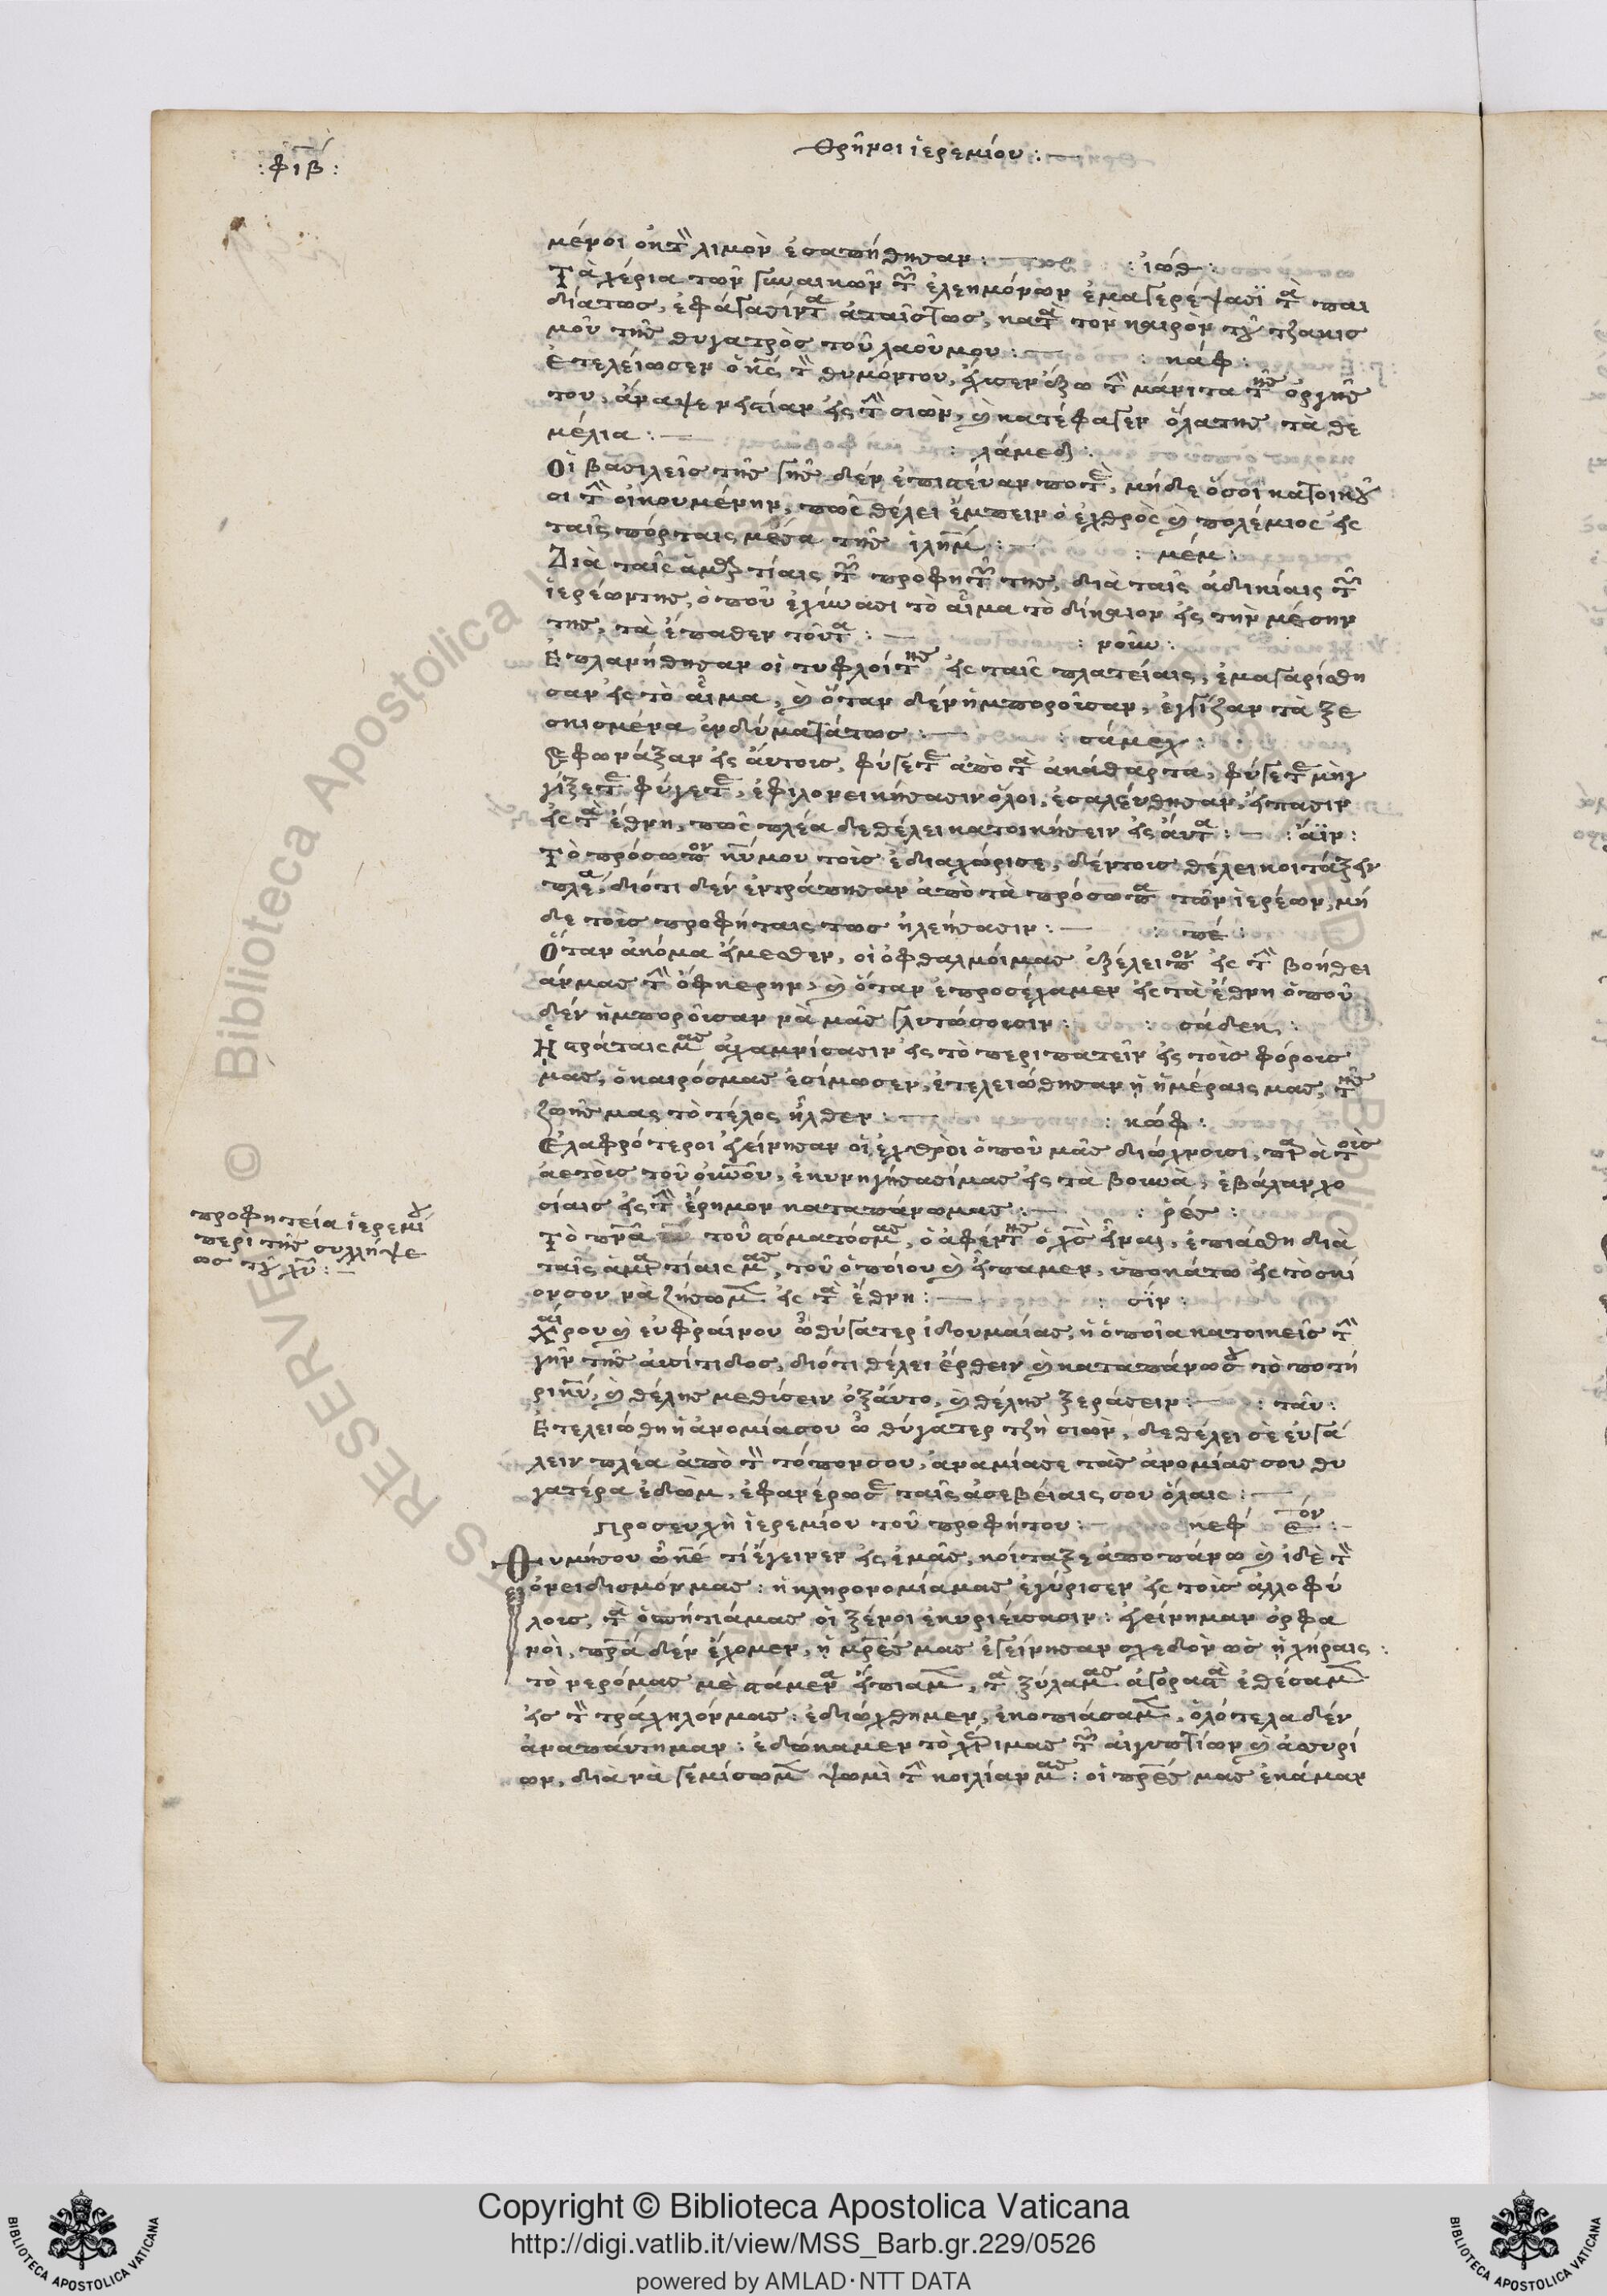 :φιβ:
Θρῆνοι ἱερεμίου :
μένοι ἐκ τὸν λιμὸν ἐσαπήθησαν : — : ἰώθ :
Τὰ χέρια τῶν γυναικῶν τῶν ἐλεημόνων ἐμαγερέψασι τὰ παι
δία τως, ἐφάγασίν τα ἀπαῖς τως, κατὰ τὸν καιρὸν τοῦ τζακισ
μοῦ τῆς θυγατρὸς τοῦ λαοῦ μου : — : κάφ :
Ἐτελείωσεν ὁ κς τὸν θυμόν του, ἔχυσεν ἔξω τὴν μάνιτα τῆς ὀργῆς
του, ἄναψεν στίαν εἰς τὴν σιὼν, καὶ κατέφαγεν ὅλα της τὰ θε
μέλια : — : λάμεδ :
Οἱ βασιλεῖς τῆς γῆς δὲν ἐπιστέυαν ποτὲ, μήδε ὅσοι κατοικοῦ
σι τὴν οἰκουμένην, πῶς θέλει ἔμπειν ὁ ἐχθρὸς καὶ πολέμιος εἰς
ταῖς πόρταις μέσα τῆς ἰλημ : — : μέμ :
Διὰ ταῖς ἁμαρτίαις τῶν προφητῶν της, διὰ ταῖς ἀδικίαις τῶν
ἱερέων της, ὁποῦ ἐχύνασι τὸ αἷμα τὸ δίκαιον εἰς τὴν μέσην
της, τὰ ἔπαθεν τοῦτα : — : νοῦν :
Ἐπλανήθησαν οἱ τυφλοί της εἰς ταῖς πλατείαις, ἐμαγαρίσθη
σαν εἰς τὸ αἷμα, καὶ ὅταν δὲν ἡμποροῖσαν, ἐγγίζαν τὰ ξε
σκισμένα ἐνδύματά τως : — : σάμεχ :
Ἐφωνάξαν εἰς ἄυτοις, φύγετε ἀπὸ τὰ ἀκάθαρτα, φύγετε μὴ γ
γίξετε φύγετε, ἐφιλονεικήσασιν ὅλοι, ἐσαλέυθησαν, εἴπασιν
εἰς τὰ ἔθνη, πῶς πλέα δε θέλει κατοικήσειν εἰς ἄυτα : — : ἄϊν :
Τὸ πρόσωπον κυ μου τοὶς ἐδιαχώρισε, δὲν τοις θέλει κοιτάξειν
πλεά, διότι δὲν ἐντράπησαν ἀπὸ τὰ πρόσωπα τῶν ἱερέων, μή
δε τοὶς προφήταις τως ἠλεήσασιν : — : πέ :
Ὅταν ἀκόμα εἴμεσθεν, οἱ ὀφθαλμοί μας ἐξέλειπον εἰς τὴν βοήθει
άν μας τὴν ὄφκερην, καὶ ὅταν ἐπροσέχαμεν εἰς τὰ ἔθνη ὁποῦ
δὲν ἡμποροῖσαν νὰ μᾶς γλυτώσουσιν : : σάδεκ :
Ἡ στράταις μας ἀχαμνίσασιν εἰς τὸ περιπατεῖν εἰς τοὶς φόροις
μας, ὁ καιρός μας ἐσίμωσεν, ἐτελειώθησαν ᾑ ἡμέραις μας, τῆς
ζωῆς μας τὸ τέλος ἦλθεν : — : κώφ :
Ἐλαφρότεροι ἐγείνησαν οἱ ἐχθροὶ ὁποῦ μᾶς διώχνουσι, παρὰ τοὶς
ἀετοὶς τοῦ οὐνοῦ, ἐκυνηγήσασί μας εἰς τὰ βουνὰ, ἐβάλαν χο
σίαις εἰς τὴν ἔρημον καταπάνω μας : — : ῥές :
Τὸ πνᾶ τοῦ στόματός μας, ὁ ἀφέντης ὁ χς εἶναι, ἐπιάσθη διὰ
ταῖς ἁμαρτίαις μας, τοῦ ὁποίου καὶ εἴπαμεν, ὑποκάτω εἰς τὸ σκί
ον σου νὰ ζήσωμεν εἰς τὰ ἔθνη : — : σὶν :
Χαίρου καὶ ἐυφραίνου ὦ θύγατερ ἰδουμαίας, ἡ ὁποῖα κατοικεῖς τὴν
γῆν τῆς ἀυσίτιδος, διότι θέλει ἔρθειν καὶ καταπάνω σου τὸ ποτή
ρι κυ, καὶ θέλης μεθίσειν ὀξ ἄυτο, καὶ θέλης ξεράσειν : — : ταν :
Ἐτελειώθη ἡ ἀνομία σου ὦ θύγατερ τζη σιὼν, δε θέλει σὲ ἐυγά
λειν πλέα ἀπὸ τὸν τόπον σου, ἀναμίασε τὰς ἀνομίας σου θυ
γατέρα ἐδὼμ, ἐφανέρωσε ταῖς ἀσεβείαις σου ὅλαις : —
Προσευχὴ ἱερεμίου τοῦ προφήτου : — κεφ ε τον : —
Θυμήσου ὦ κε τί ἔγεινεν εἰς ἐμᾶς, κοίταξε ἀποπάνω καὶ ἰδὲ τὸν
ὀνειδισμόν μας : ἡ κληρονομία μας ἐγύρισεν εἰς τοὶς ἀλλοφύ
λοις, τὰ ὁσπήτιά μας οἱ ξένοι ἐκυριέυσασιν : ἐγείνημαν ὀρφα
νοὶ, πρα δὲν ἔχομεν, ᾑ μρες μας ἐγείνησαν σχεδὸν ὡς ᾑ χήραις :
τὸ νερό μας μὲ στάμενα ἤπιαμεν, τὰ ξύλα μας ἀγοραστὰ ἐθέσαμεν
εἰς τὸν τράχηλόν μας : ἐδιώχθημεν, ἐκοπιάσαμεν, ὁλότελα δὲν
ἀναπάυτημαν : ἐδώκαμεν τὸ χέρι μας τῶν αἰγυπτίων καὶ ἀσυρί
ων, διὰ νὰ γεμίσωμεν ψωμὶ τὴν κοιλίαν μας : οἱ πρες μας ἐκάμαν
προφητεία ἱερεμίου
περὶ τῆς συλλήψε
ως τοῦ χυ : —
Copyright © Biblioteca Apostolica Vaticana
http://digi.vatlib.it/view/MSS_Barb.gr.229/0526
powered by AMLAD·NTT DATA